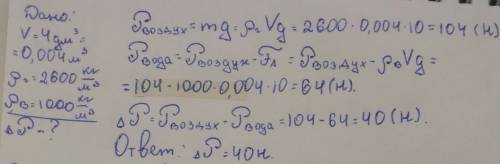 Дано:
V=4дм³=
=0,004м³
ρг=2600 кг/м³
ρв=1000 кг/м³
ΔP-?
Pвоздух=mg=ρгVg=2600·0,004·10=104(Н)
Pвода=Pвоздух-Fл=Pвоздух-ρвVg=
=104-1000·0,004·10=64(Н).
ΔP=Pвоздух-Pвода=104-64=40(Н).
Ответ: ΔP=40Н.